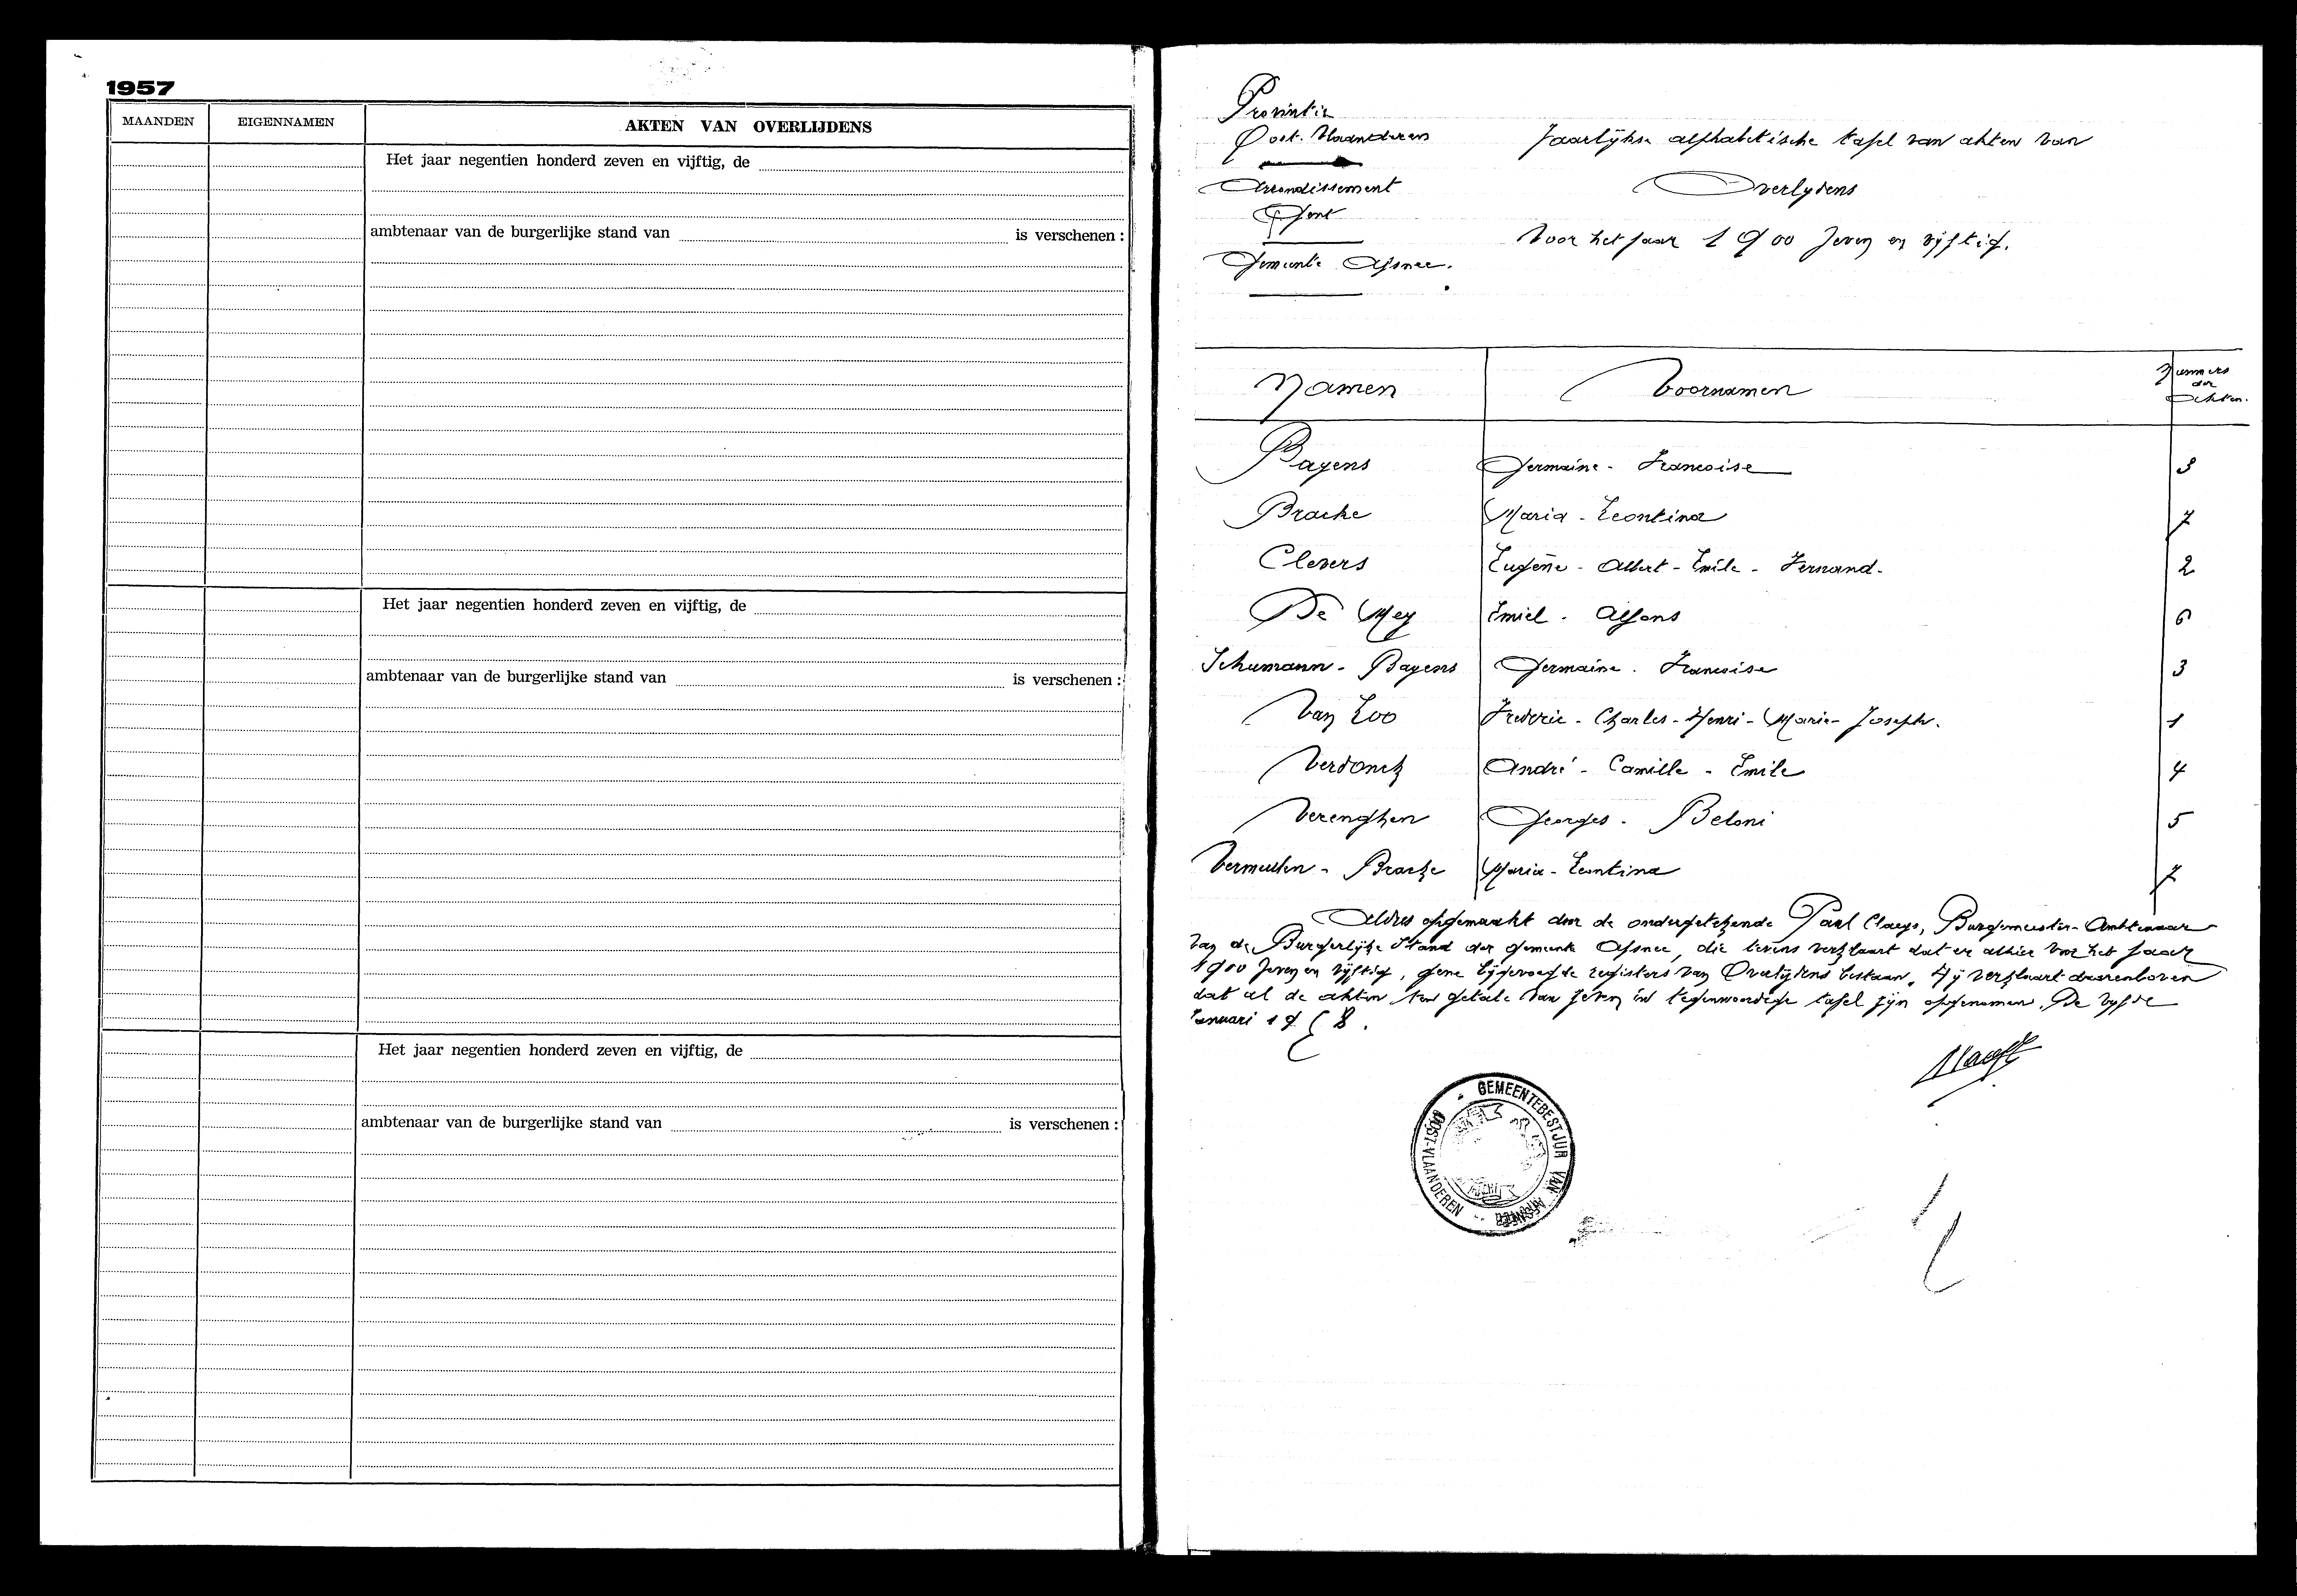 1957
MAANDEN EIGENNAMEN AKTEN VAN OVERLIJDENS
Het jaar negentien honderd zeven en vijftig, de
ambtenaar van de burgerlijke stand van is verschenen :
Het jaar negentien honderd zeven en vijftig, de
ambtenaar van de burgerlijke stand van is verschenen :
Het jaar negentien honderd zeven en vijftig, de
ambtenaar van de burgerlijke stand van is verschenen :
Provintie
Oost-Vlaanderen
Arrondissement
Gent
Gemeente Afsnee.
Jaarlijkse alphabetische tafel van akten van
Overlydens
Voor het jaar 1900 zeven en vijftig.
Namen Voornamen Nummers der Akten.
Bayens Germaine - Francoise 3
Bracke Maria - Leontina 7
Clevers Eugène - Albert - Emile - Fernand. 2
De Mey Emiel - Alfons 6
Schumann - Bayens Germaine - Francoise 3
Van Loo Frederic - Charles - Henri - Marie - Joseph. 1
Verdonck André - Camille - Emile 4
Verenghen Georges - Beloni 5
Vermeulen - Bracke Maria - Leontina 7
Aldus opgemaakt door de ondergetekende Paul Claeys, Burgemeester-Ambtenaar
van de Burgerlijke Stand der gemeente Afsnee, die tevens verklaart dat er alhier voor het jaar
1900 zeven en vijftig, gene bijgevoegde registers van Overlijdens bestaan. Hij verklaart daarenboven
dat al de akten ten getale van zeven in tegenwoordige tafel zijn opgenomen. De vijfde
Januari 1958.
GEMEENTEBESTUUR VAN AFSNEE
OOST-VLAANDEREN